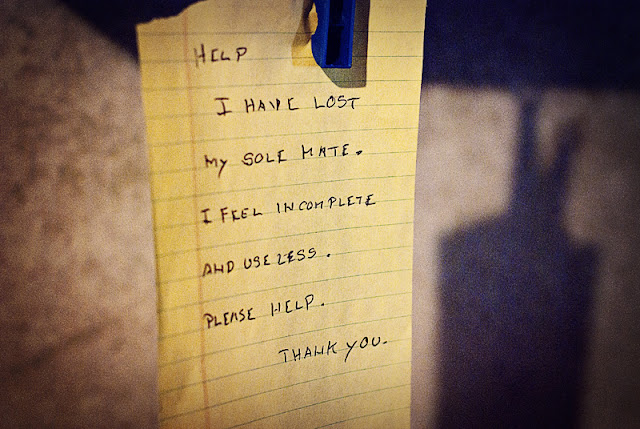 HELP
I HAVE LOST
MY SOLE MATE.
I FEEL INCOMPLETE
AND USELESS.
PLEASE HELP.
THANK YOU.